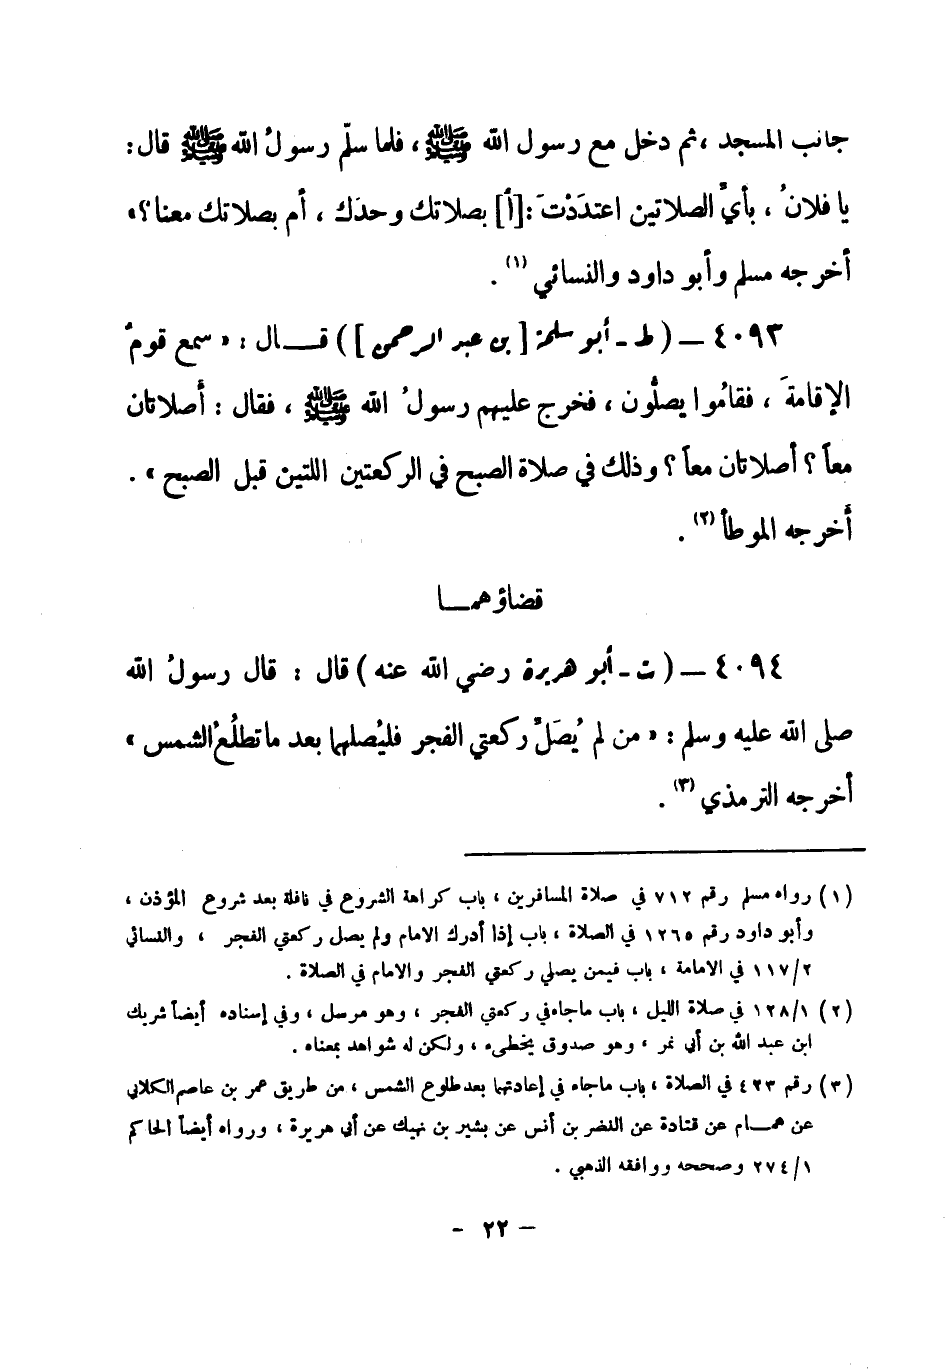 جانب المسجد ، ثم دخل مع رسول الله ﷺ ، فلما سلّم رسولُ الله ﷺ قال :
يا فلانُ ، بأيِّ الصلاتين اعتدَدْتَ : [أ] بصلاتك وحدَك ، أم بصلاتك معنا ؟ »
أخرجه مسلم وأبو داود والنسائي (١) .
٤٠٩٣ – ( ط - أبو سلمة [ بن عبد الرحمن ] ) قـــال : « سمع قومٌ
الإقامةَ ، فقامُوا يصلُّون ، فخرج عليهم رسولُ الله ﷺ ، فقال : أصلاتان
معاً ؟ أصلاتان معاً ؟ وذلك في صلاة الصبح في الركعتين اللتين قبل الصبح » .
أخرجه الموطأ (٢) .
قضاؤهمـــا
٤٠٩٤ – ( ت - أبو هريرة رضي الله عنه ) قال : قال رسولُ الله
صلى الله عليه وسلم : « من لم يُصَلِّ ركعتي الفجر فليُصلهما بعد ما تطلُعُ الشمس »
أخرجه الترمذي (٣) .
(١) رواه مسلم رقم ٧١٢ في صلاة المسافرين ، باب كراهة الشروع في نافلة بعد شروع المؤذن ،
وأبو داود رقم ١٢٦٥ في الصلاة ، باب إذا أدرك الامام ولم يصل ركعتي الفجر ، والنسائي
٢/١١٧ في الامامة ، باب فيمن يصلي ركعتي الفجر والامام في الصلاة .
(٢) ١/١٢٨ في صلاة الليل ، باب ماجاء في ركعتي الفجر ، وهو مرسل ، وفي إسناده أيضاً شريك
ابن عبد الله بن أبي نمر ، وهو صدوق يخطىء ، ولكن له شواهد بمعناه .
(٣) رقم ٤٢٣ في الصلاة ، باب ماجاء في إعادتهما بعد طلوع الشمس ، من طريق عمر بن عاصم الكلابي
عن همـــام عن قتادة عن النضر بن أنس عن بشير بن نهيك عن أبي هريرة ، ورواه أيضاً الحاكم
١/٢٧٤ وصححه ووافقه الذهبي .
– ٢٢ -